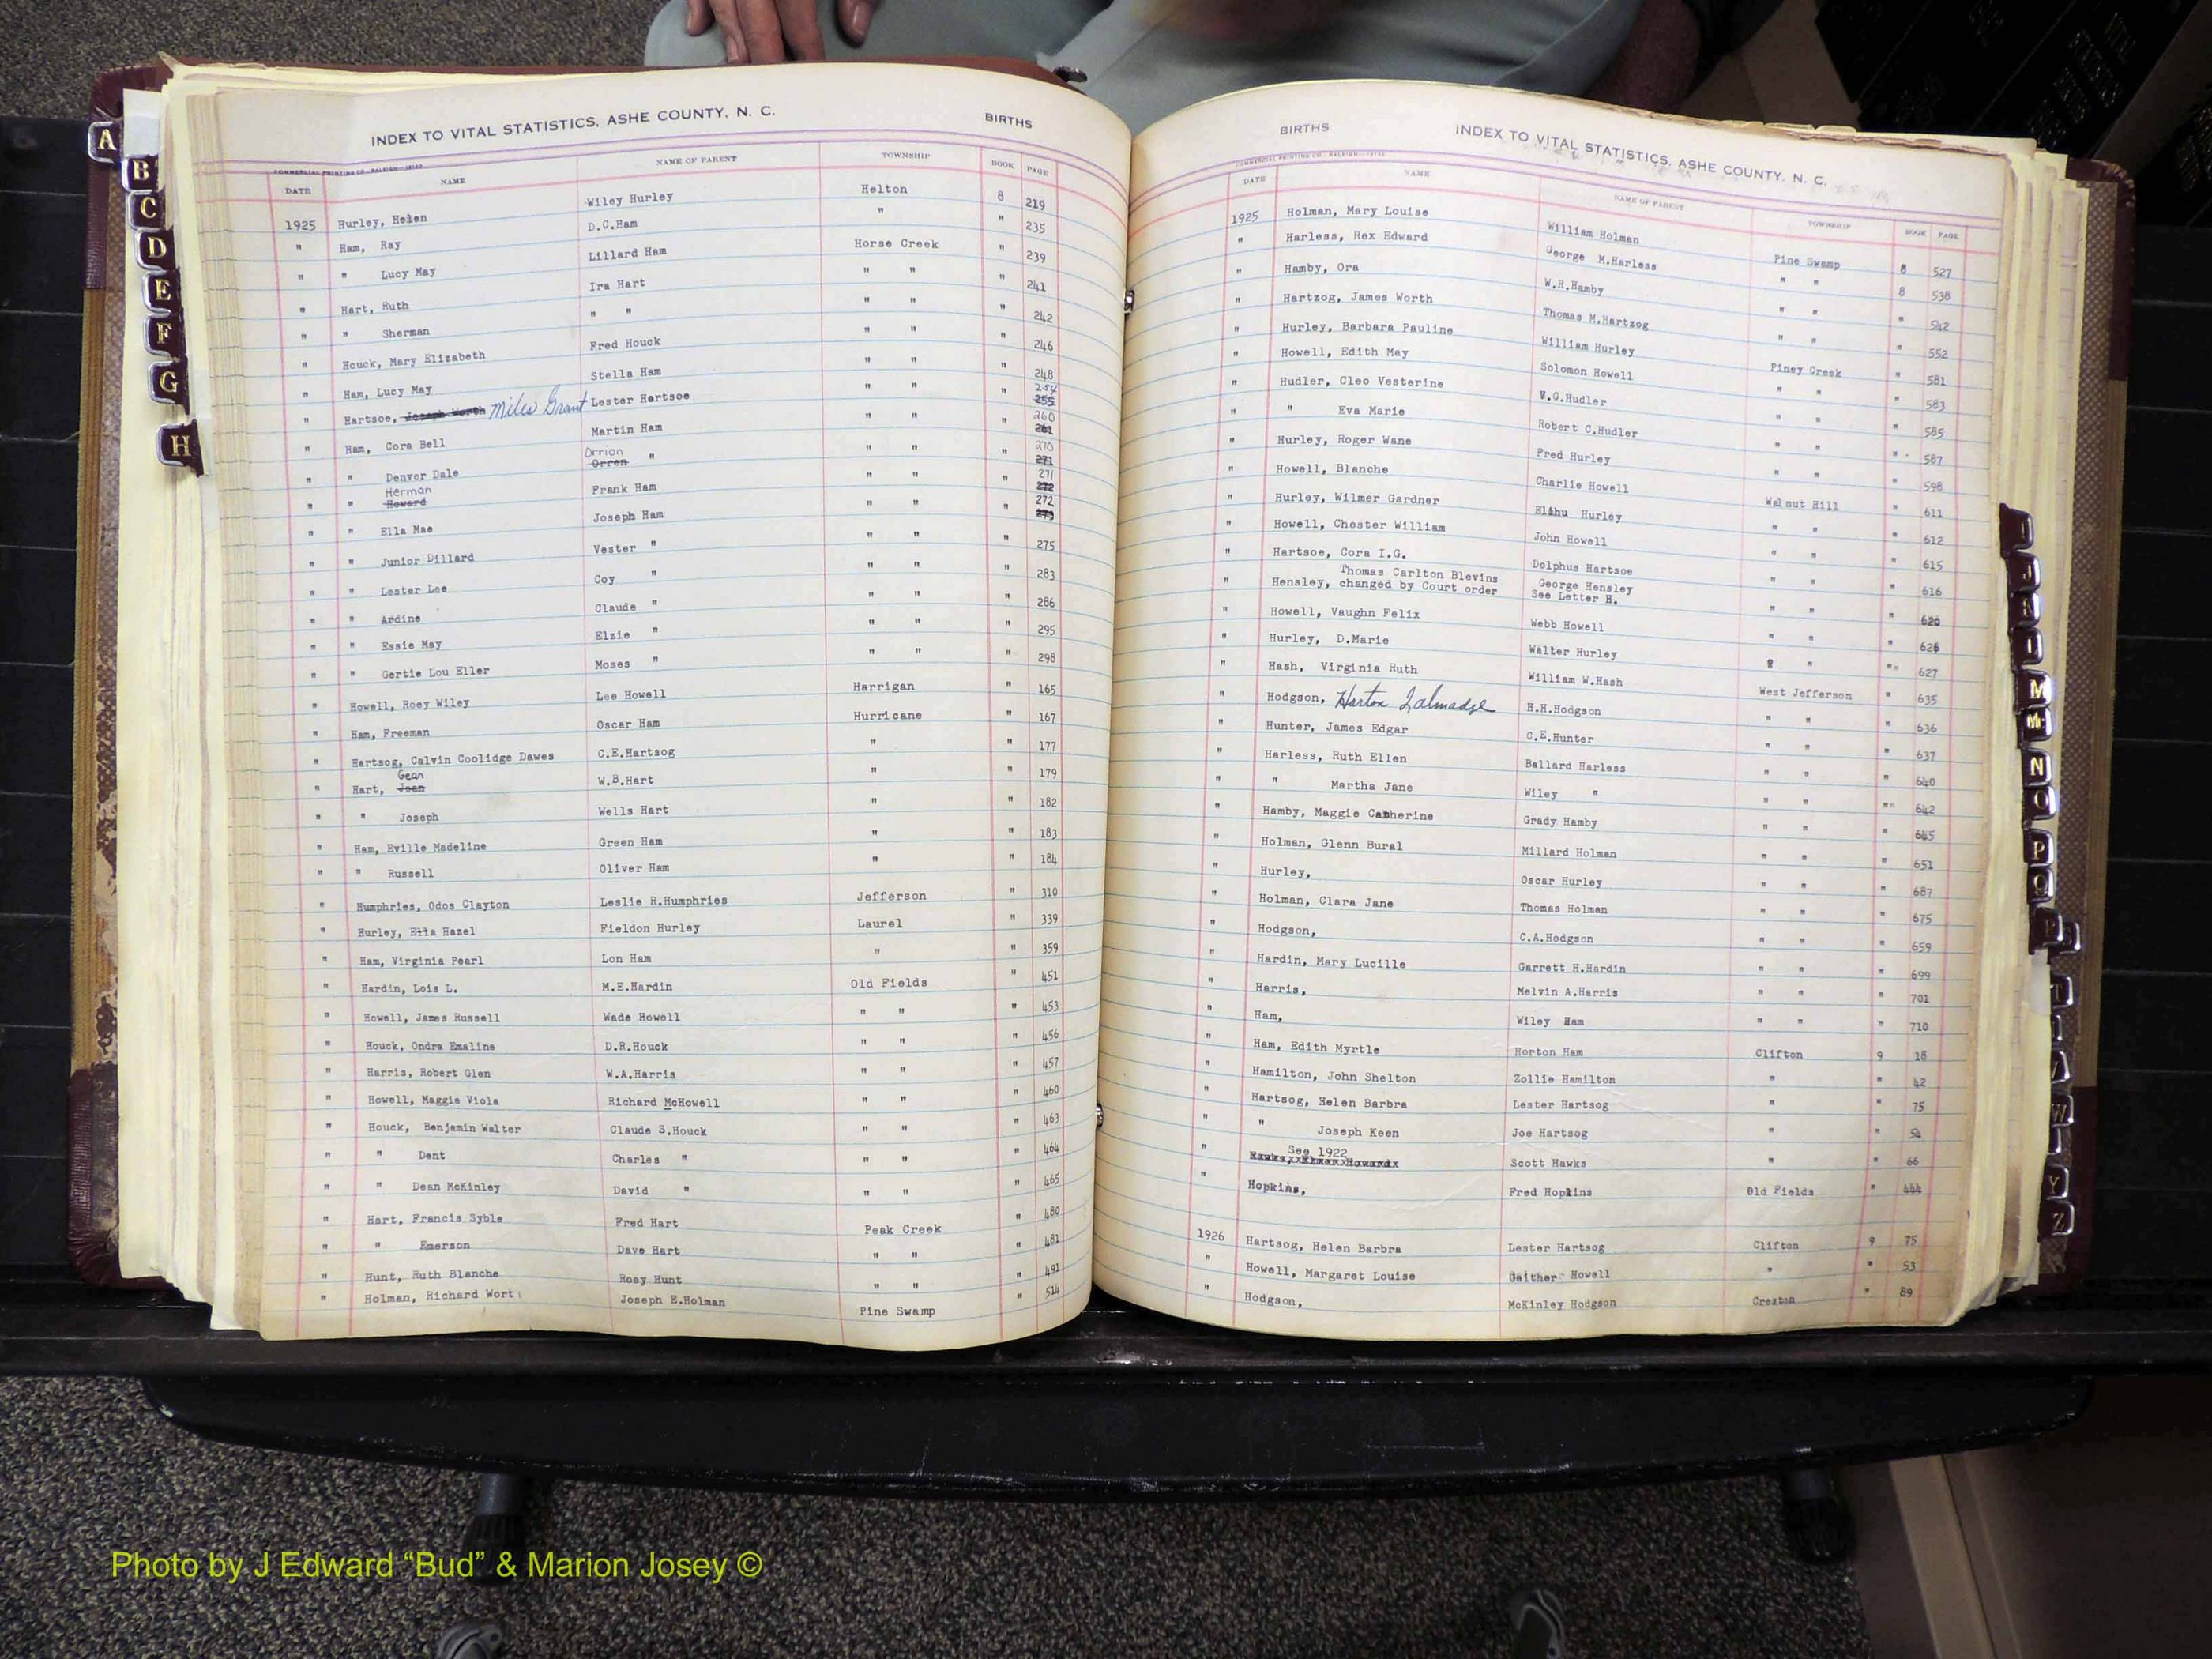 INDEX TO VITAL STATISTICS, ASHE COUNTY, N. C. BIRTHS
COMMERCIAL PRINTING CO.—RALEIGH
DATE NAME NAME OF PARENT TOWNSHIP BOOK PAGE
1925 Hurley, Helen Wiley Hurley Helton 8 219
" Ham, Ray D.C.Ham " " 235
" " Lucy May Lillard Ham Horse Creek " 239
" Hart, Ruth Ira Hart " " " 241
" " Sherman " " " " " 242
" Houck, Mary Elizabeth Fred Houck " " " 246
" Ham, Lucy May Stella Ham " " " 248
" Hartsoe, Joseph Worth Miles Grant Lester Hartsoe " " " 254 255
" Ham, Cora Bell Martin Ham " " " 260 261
" " Denver Dale Orrion Orren " " " " 270 271
" " Herman Howard Frank Ham " " " 271 272
" " Ella Mae Joseph Ham " " " 272 273
" " Junior Dillard Vester " " " " 275
" " Lester Lee Coy " " " " 283
" " Ardine Claude " " " " 286
" " Essie May Elzie " " " " 295
" " Gertie Lou Eller Moses " " " " 298
" Howell, Roey Wiley Lee Howell Harrigan " 165
" Ham, Freeman Oscar Ham Hurricane " 167
" Hartsog, Calvin Coolidge Dawes C.E.Hartsog " " 177
" Hart, Gean Jean W.B.Hart " " 179
" " Joseph Wells Hart " " 182
" Ham, Eville Madeline Green Ham " " 183
" " Russell Oliver Ham " " 184
" Humphries, Odos Clayton Leslie R.Humphries Jefferson " 310
" Hurley, Etta Hazel Fieldon Hurley Laurel " 339
" Ham, Virginia Pearl Lon Ham " " 359
" Hardin, Lois L. M.E.Hardin Old Fields " 451
" Howell, James Russell Wade Howell " " " 453
" Houck, Ondra Emaline D.R.Houck " " " 456
" Harris, Robert Glen W.A.Harris " " " 457
" Howell, Maggie Viola Richard McHowell " " " 460
" Houck, Benjamin Walter Claude S.Houck " " " 463
" " Dent Charles " " " " 464
" " Dean McKinley David " " " " 465
" Hart, Francis Syble Fred Hart Peak Creek " 480
" " Emerson Dave Hart " " " 481
" Hunt, Ruth Blanche Roey Hunt " " " 491
" Holman, Richard Wort Joseph E.Holman Pine Swamp " 514
BIRTHS INDEX TO VITAL STATISTICS, ASHE COUNTY, N. C.
COMMERCIAL PRINTING CO.—RALEIGH
DATE NAME NAME OF PARENT TOWNSHIP BOOK PAGE
1925 Holman, Mary Louise William Holman Pine Swamp 8 527
" Harless, Rex Edward George M.Harless " " 8 538
" Hamby, Ora W.R.Hamby " " " 542
" Hartzog, James Worth Thomas M.Hartzog " " " 552
" Hurley, Barbara Pauline William Hurley Piney Creek " 581
" Howell, Edith May Solomon Howell " " " 583
" Hudler, Cleo Vesterine V.G.Hudler " " " 585
" " Eva Marie Robert C.Hudler " " " 587
" Hurley, Roger Wane Fred Hurley " " " 598
" Howell, Blanche Charlie Howell Walnut Hill " 611
" Hurley, Wilmer Gardner Elihu Hurley " " " 612
" Howell, Chester William John Howell " " " 615
" Hartsoe, Cora I.G. Dolphus Hartsoe " " " 616
" Hensley, Thomas Carlton Blevins changed by Court order George Hensley See Letter B. " " " 620
" Howell, Vaughn Felix Webb Howell " " " 626
" Hurley, D.Marie Walter Hurley " " " 627
" Hash, Virginia Ruth William W.Hash West Jefferson " 635
" Hodgson, Horton Talmadge H.H.Hodgson " " " 636
" Hunter, James Edgar C.E.Hunter " " " 637
" Harless, Ruth Ellen Ballard Harless " " " 640
" " Martha Jane Wiley " " " " 642
" Hamby, Maggie Catherine Grady Hamby " " " 645
" Holman, Glenn Bural Millard Holman " " " 651
" Hurley, Oscar Hurley " " " 687
" Holman, Clara Jane Thomas Holman " " " 675
" Hodgson, C.A.Hodgson " " " 659
" Hardin, Mary Lucille Garrett H.Hardin " " " 699
" Harris, Melvin A.Harris " " " 701
" Ham, Wiley Ham " " " 710
" Ham, Edith Myrtle Horton Ham Clifton 9 18
" Hamilton, John Shelton Zollie Hamilton " " 42
" Hartsog, Helen Barbra Lester Hartsog " " 75
" " Joseph Keen Joe Hartsog " " 54
" See 1922 Scott Hawks " " 66
" Hopkins, Fred Hopkins Old Fields " 444
1926 Hartsog, Helen Barbra Lester Hartsog Clifton 9 75
" Howell, Margaret Louise Gaither Howell " " 53
" Hodgson, McKinley Hodgson Creston " 89
A
B
C
D
E
F
G
H
M
Mc
N
O
P
Q
R
T
W
Y
Z
Photo by J Edward “Bud” & Marion Josey ©